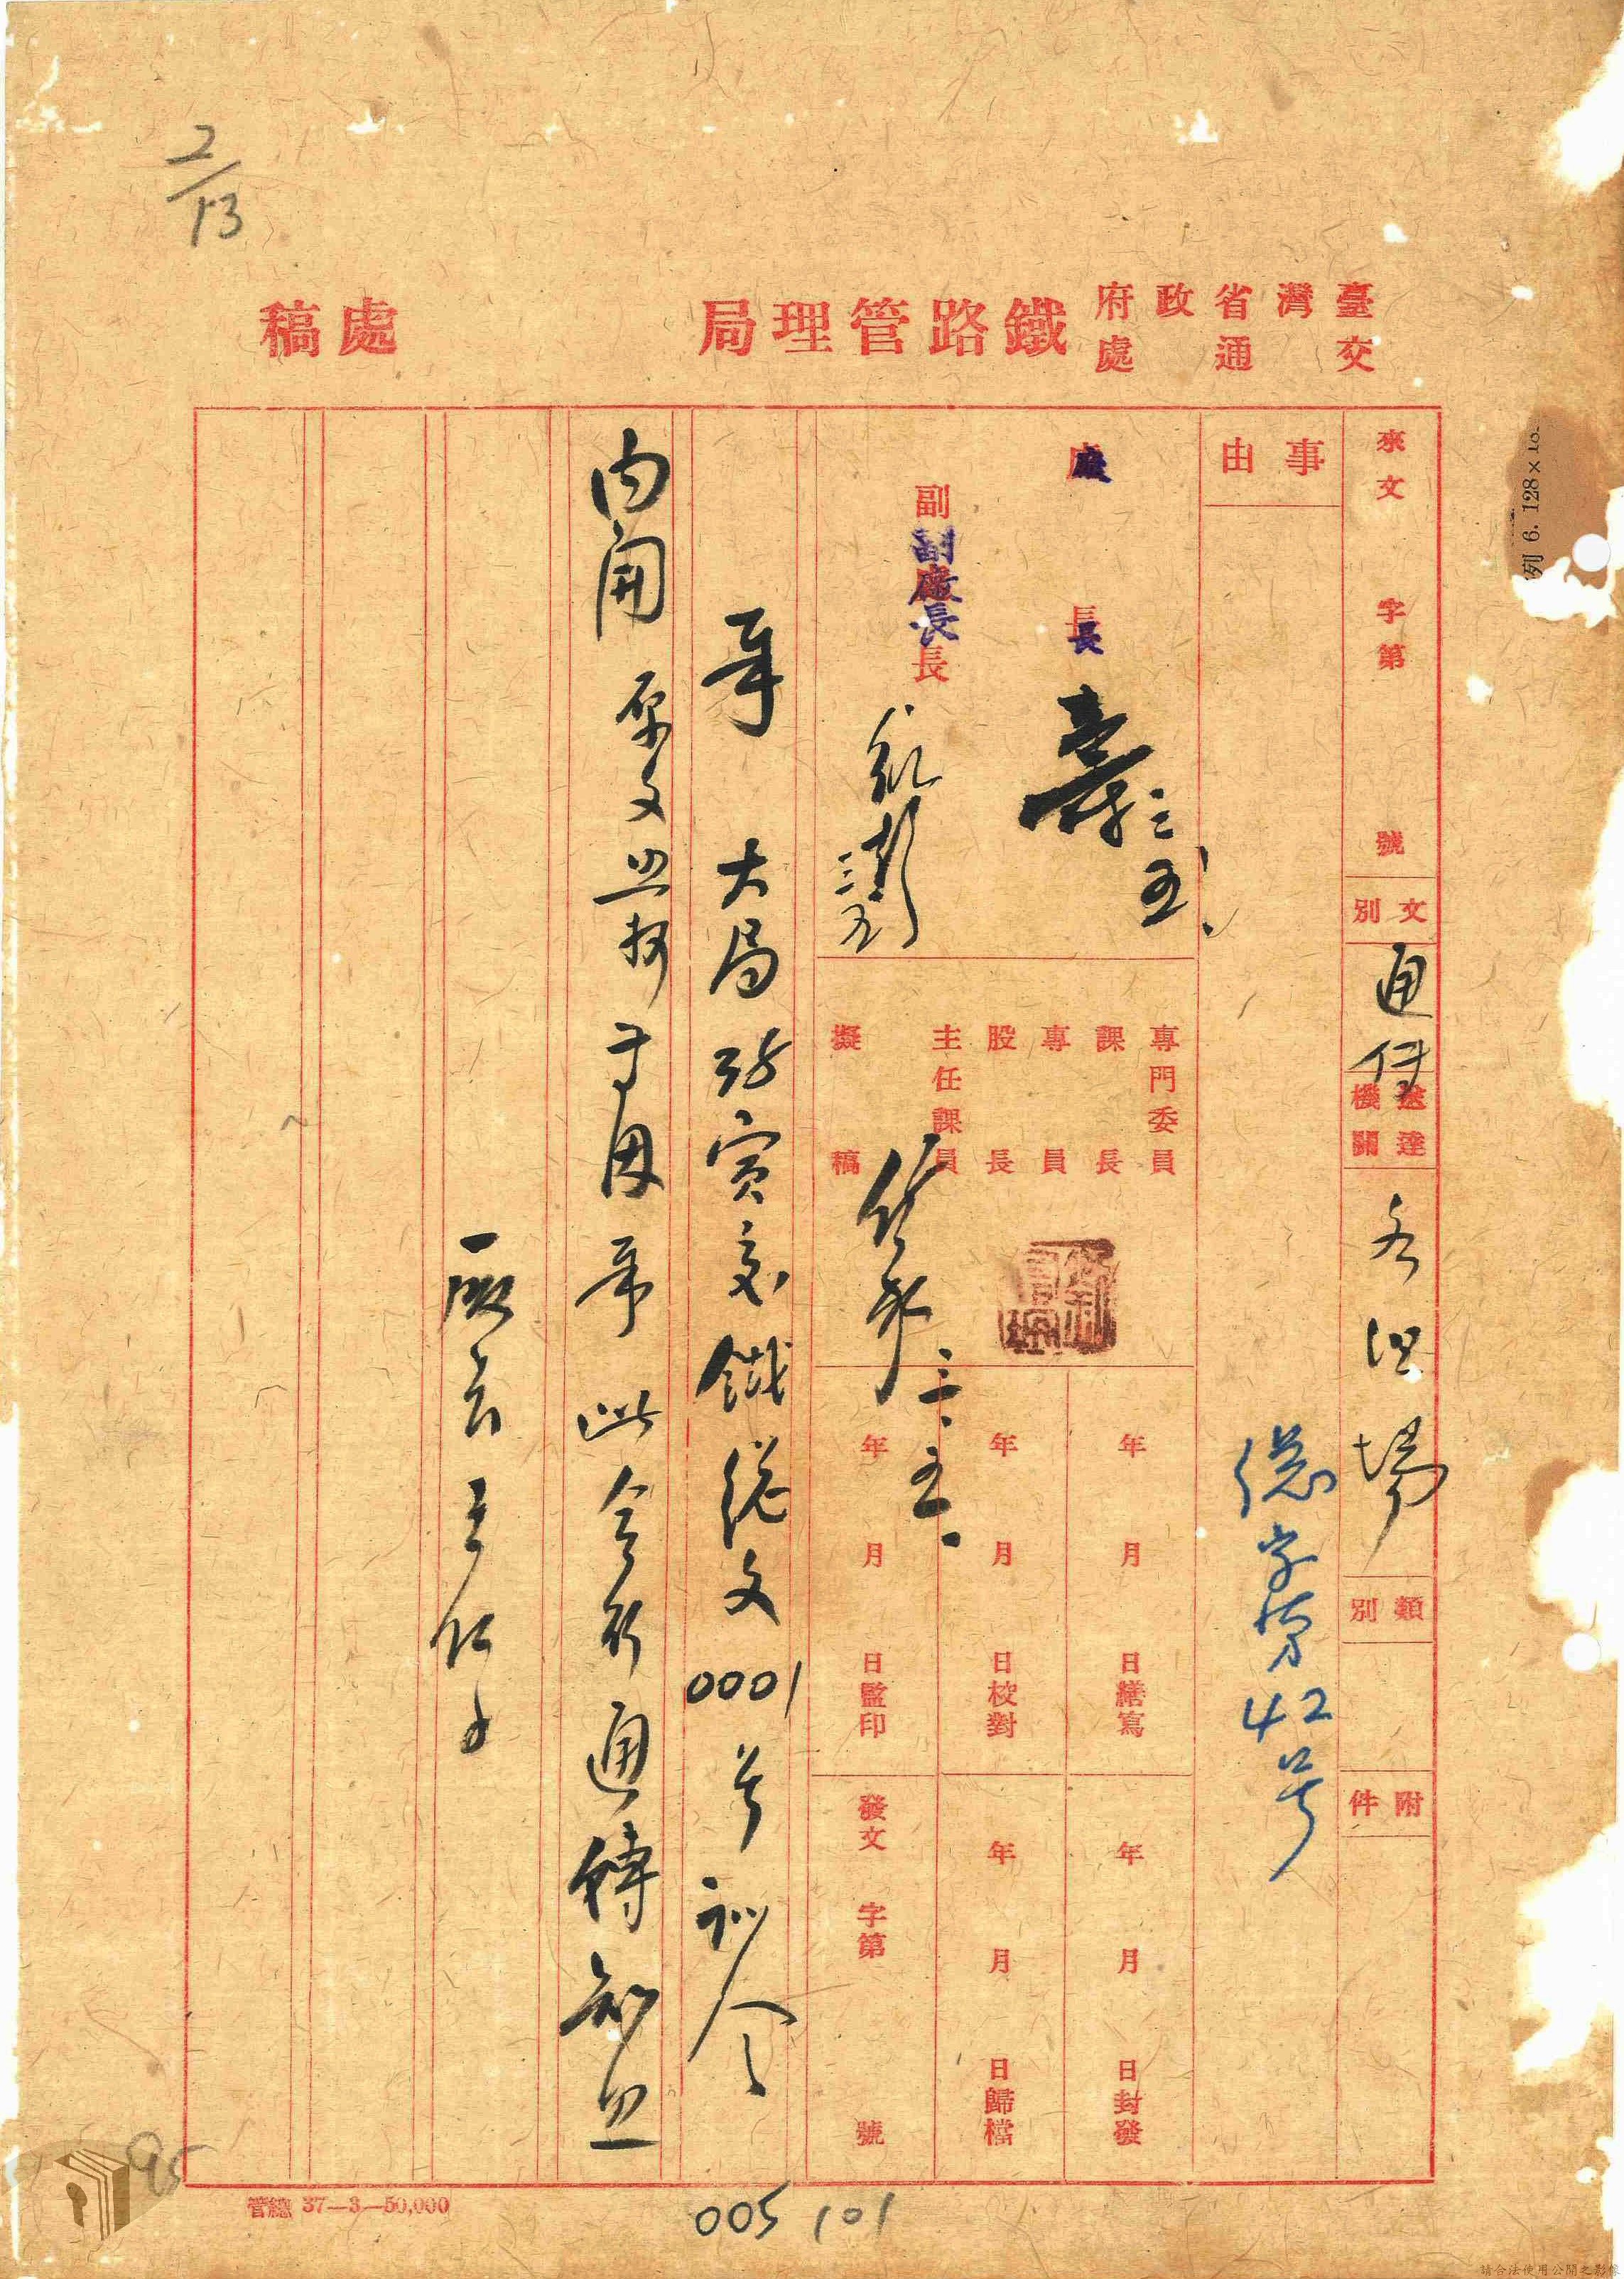 2/13
臺灣省政府交通處鐵路管理局 處稿
列 6. 128×18
來文 字第 號
文別 通傳
送達機關 各組場
類別
附件
事由
總字第42号
廠長
副廠長
三、五、
三五
專門委員
課長
專員
股長
主任課員
擬稿
三、五、
年 月 日繕寫
年 月 日校對
年 月 日監印
年 月 日封發
年 月 日歸檔
發文 字第 號
奉 大局 寅交鐵總文0001号訓令
内開 原文照抄 等因奉此合行通轉知照
廠長 王
管總 37—3—50,000
005101
95
請合法使用公開之影像